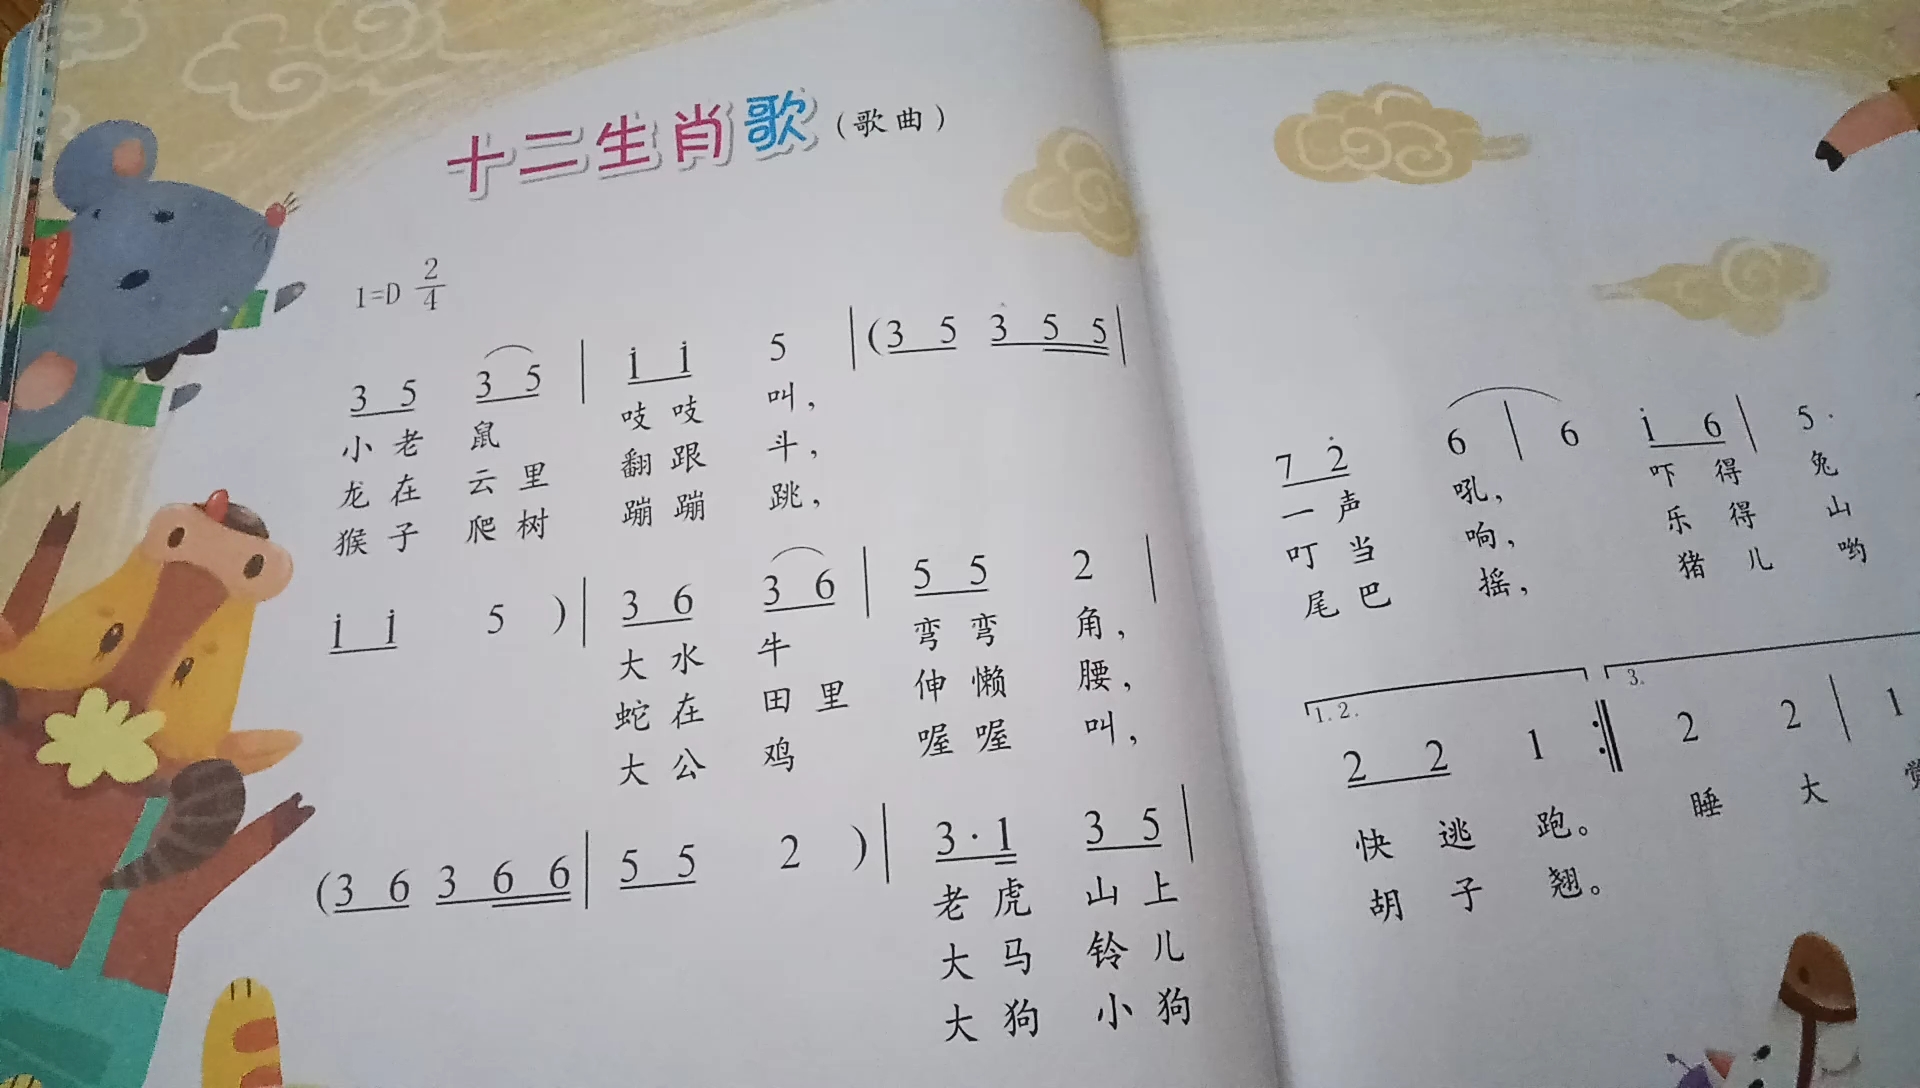 十二生肖歌（歌曲）
1=D 2/4
3 5 3 5 | i i 5 | (3 5 3 5 5 |
小老 鼠 吱吱 叫，
龙在 云里 翻跟 斗，
猴子 爬树 蹦蹦 跳，
i i 5 ) | 3 6 3 6 | 5 5 2 |
大水 牛 弯弯 角，
蛇在 田里 伸懒 腰，
大公 鸡 喔喔 叫，
(3 6 3 6 6 | 5 5 2 ) | 3·1 3 5 |
老虎 山上
大马 铃儿
大狗 小狗
7 2 6 | 6 i 6 | 5.
一声 吼， 吓得 兔
叮当 响， 乐得 山
尾巴 摇， 猪儿 哟
1.2. 3.
2 2 1 :‖ 2 2 | 1
快逃 跑。 睡 大 觉
胡子 翘。